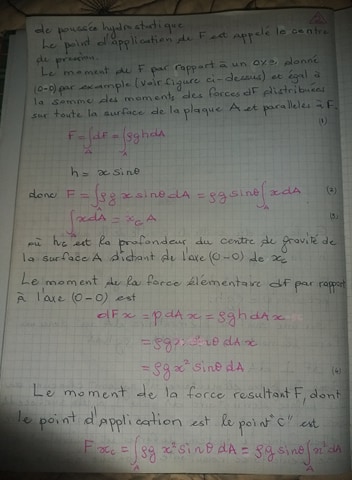 de poussée hydrostatique.
Le point d'application de F est appelé le centre
de pression.
Le moment de F par rapport à un axe donné
(0-0) par example (voir figure ci-dessus) est égal à
la somme des moments des forces dF distribuées
sur toute la surface de la plaque A et parallèles à F.
(1)
F = ∫_A dF = ∫_A ρghdA
h = x sinθ
donc F = ∫_A ρg x sinθ dA = ρg sinθ ∫_A x dA (2)
∫_A x dA = x_G A (3)
où h_c est la profondeur du centre de gravité de
la surface A distant de l'axe (0-0) de x_c
Le moment de la force élémentaire dF par rapport
à l'axe (0-0) est
dF x = p dA x = ρghdA x
= ρg x sinθ dA x
= ρg x² sinθ dA
(4)
Le moment de la force resultant F, dont
le point d'application est le point "C" est
F x_c = ∫_A ρg x² sinθ dA = ρg sinθ ∫_A x² dA